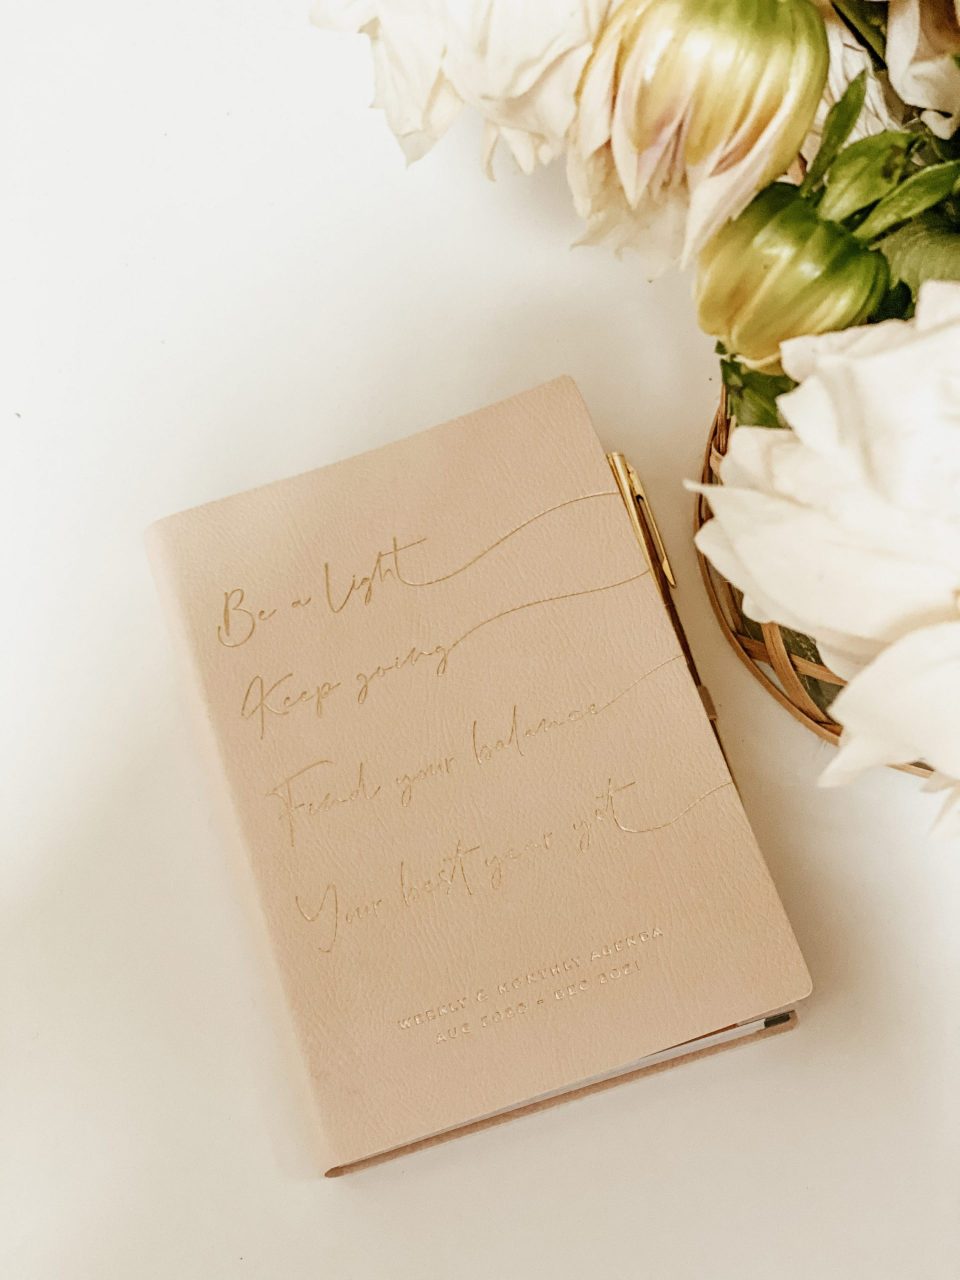 Be a light
Keep going
Find your balance
Your best year yet
WEEKLY & MONTHLY AGENDA
AUG 2020 - DEC 2021